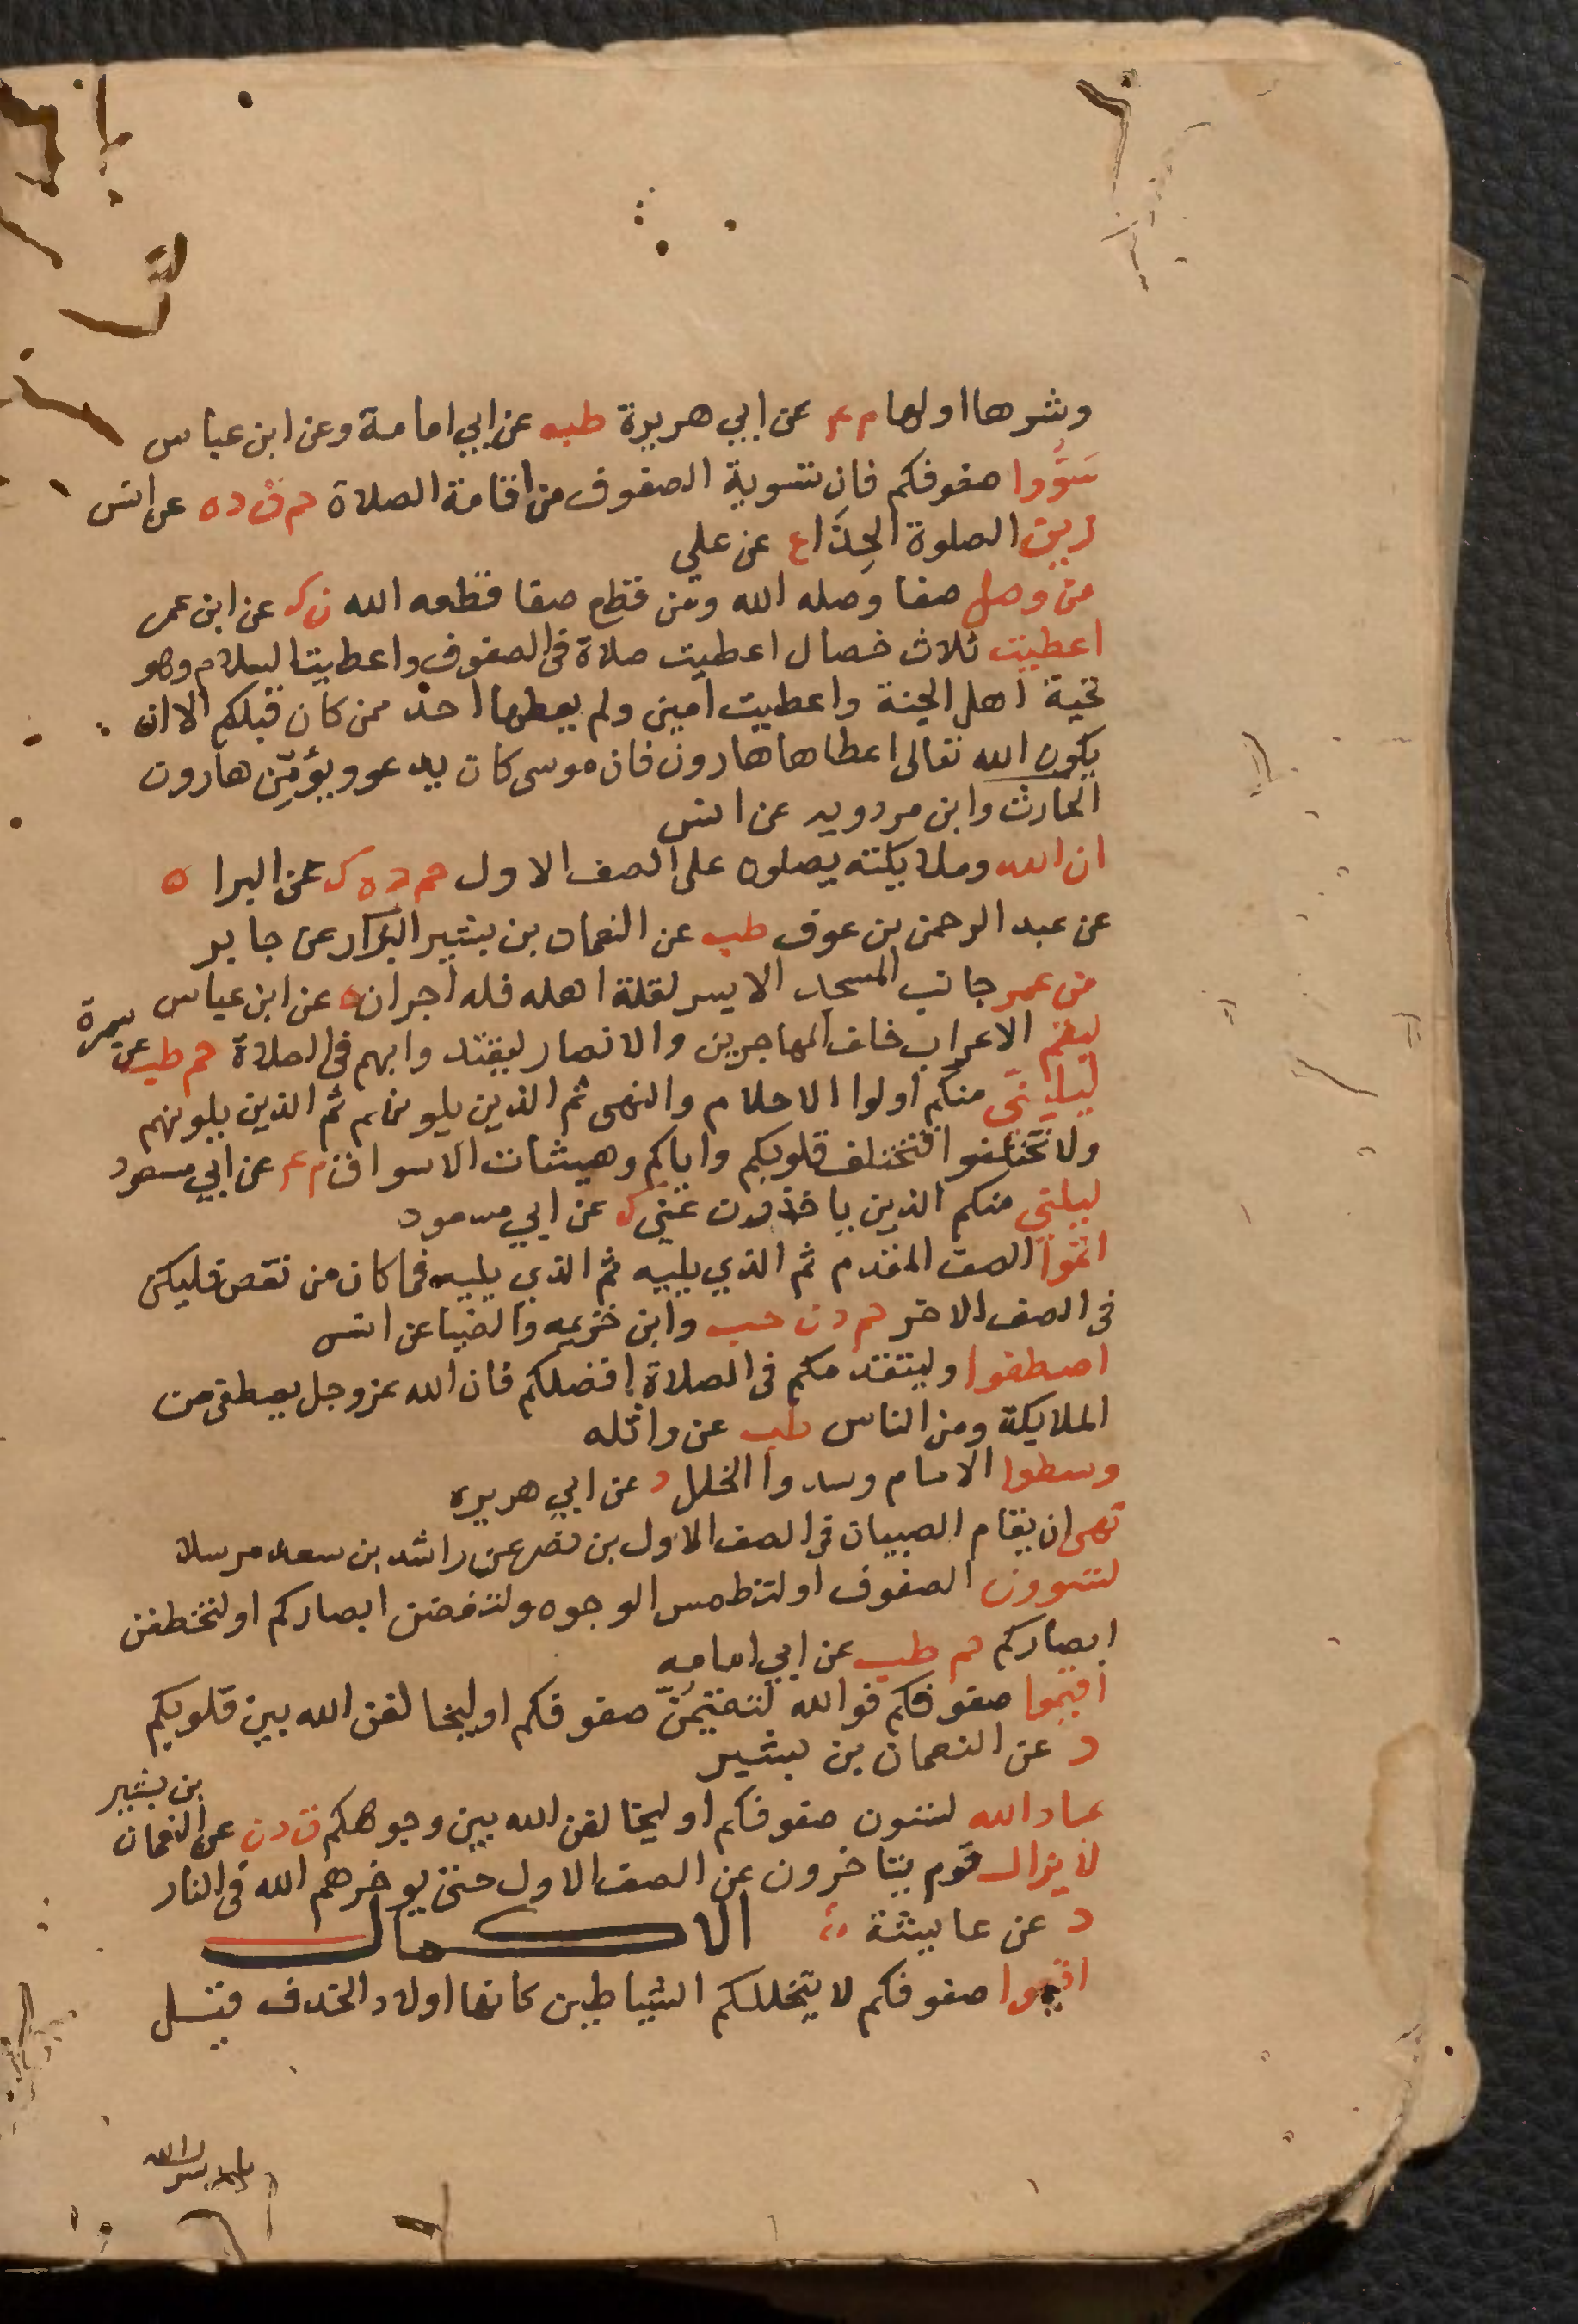 وشرها اولها م عـ عن ابي هريرة طب عن ابي امامة وعن ابن عباس
سَوُّوا صفوفكم فان تسوية الصفوف من اقامة الصلاة حم ق د ه عن انس
زين الصلوة الحِذَاء ع عن علي
من وصل صفا وصله الله ومن قطع صفا قطعه الله ن ك عن ابن عمر
اعطيت ثلاث خصال اعطيت صلاة في الصفوف واعطيت السلام وهو
تحية اهل الجنة واعطيت امين ولم يعطها احد ممن كان قبلكم الا ان
يكون الله تعالى اعطاها هارون فان موسى كان يدعو ويؤمِّن هارون
الحارث وابن مردويه عن انس
ان الله وملايكته يصلون على الصف الاول حم د ه ك عن البرا ه
عن عبد الرحمن بن عوف طب عن النعمان بن بشير البزار عن جابر
من عمر جانب المسجد الايسر لقلة اهله فله اجران ه عن ابن عباس
ليقم الاعراب خلف المهاجرين والانصار ليقتدوا بهم في الصلاة حم طب عن سمرة
ليلينّي منكم اولوا الاحلام والنهى ثم الذين يلونهم ثم الذين يلونهم
ولا تختلفوا فتختلف قلوبكم واياكم وهيشات الاسواق م عـ عن ابي مسعود
ليلني منكم الذين ياخذون عني ك عن ابي مسعود
اتموا الصف المقدم ثم الذي يليه ثم الذي يليه فما كان من نقص فليكن
في الصف الاخر حم د ن حب وابن خزيمه والضيا عن انس
اصطفوا وليتقدمكم في الصلاة افضلكم فان الله عز وجل يصطفي من
الملايكة ومن الناس طب عن واثله
وسطوا الامام وسدوا الخلل د عن ابي هريره
نهى ان يقام الصبيان في الصف الاول بن نصر عن راشد بن سعد مرسلا
لتسوون الصفوف او لتطمس الوجوه ولتغضن ابصاركم او لتخطفن
ابصاركم حم طب عن ابي امامه
اقيموا صفوفكم فوالله لتقيمُنّ صفوفكم او ليخالفن الله بين قلوبكم
د عن النعمان بن بشير
عباد الله لتسون صفوفكم او ليخالفن الله بين وجوهكم ق د ن عن النعمان بن بشير
لا يزال قوم يتاخرون عن الصف الاول حتى يوخرهم الله في النار
د عن عايشة الاكمال
اقيموا صفوفكم لا يتخللكم الشياطين كانها اولاد الخذف قيل